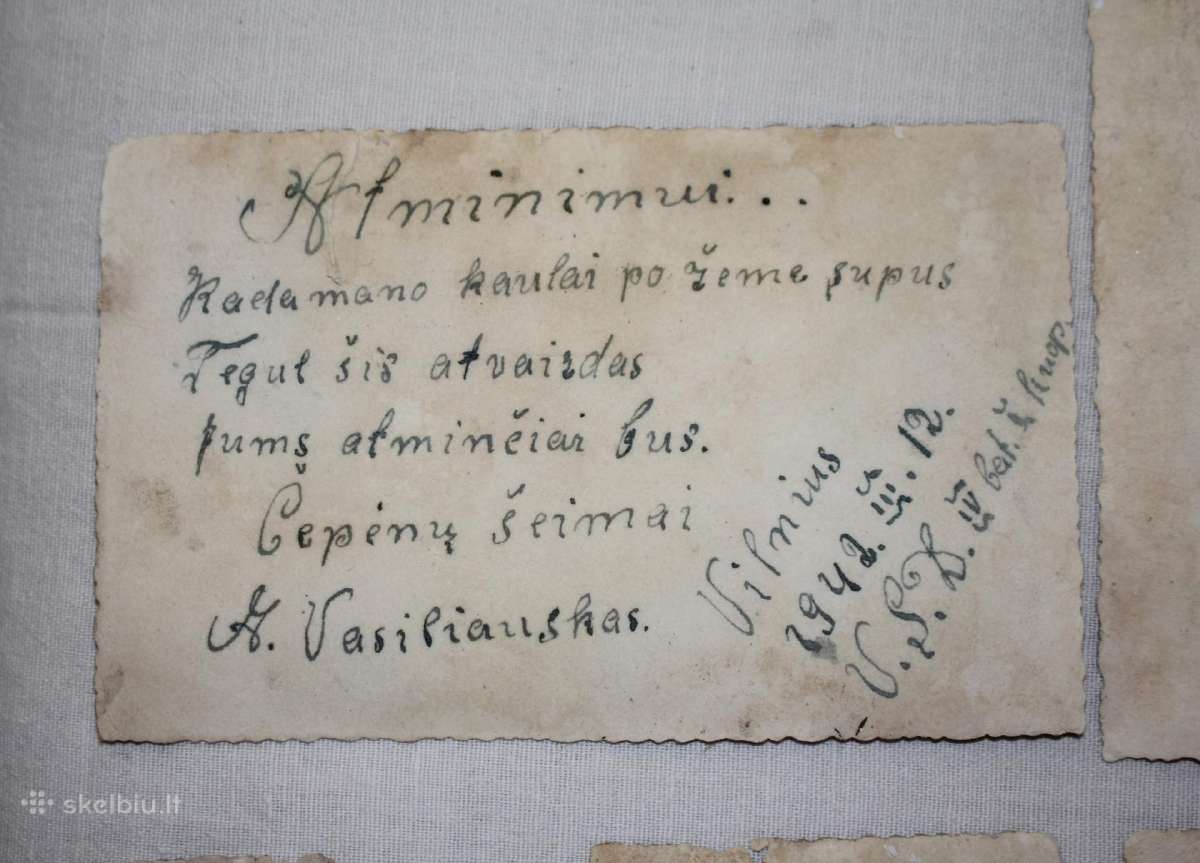 Atminimui...
Kada mano kaulai po žeme supus
Tegul šis atvaizdas
Jums atminčiai bus.
Čepėnų šeimai
A. Vasiliauskas.
Vilnius
1942. III. 12.
V.S.D. IV bat. 2 kuop.
skelbiu.lt